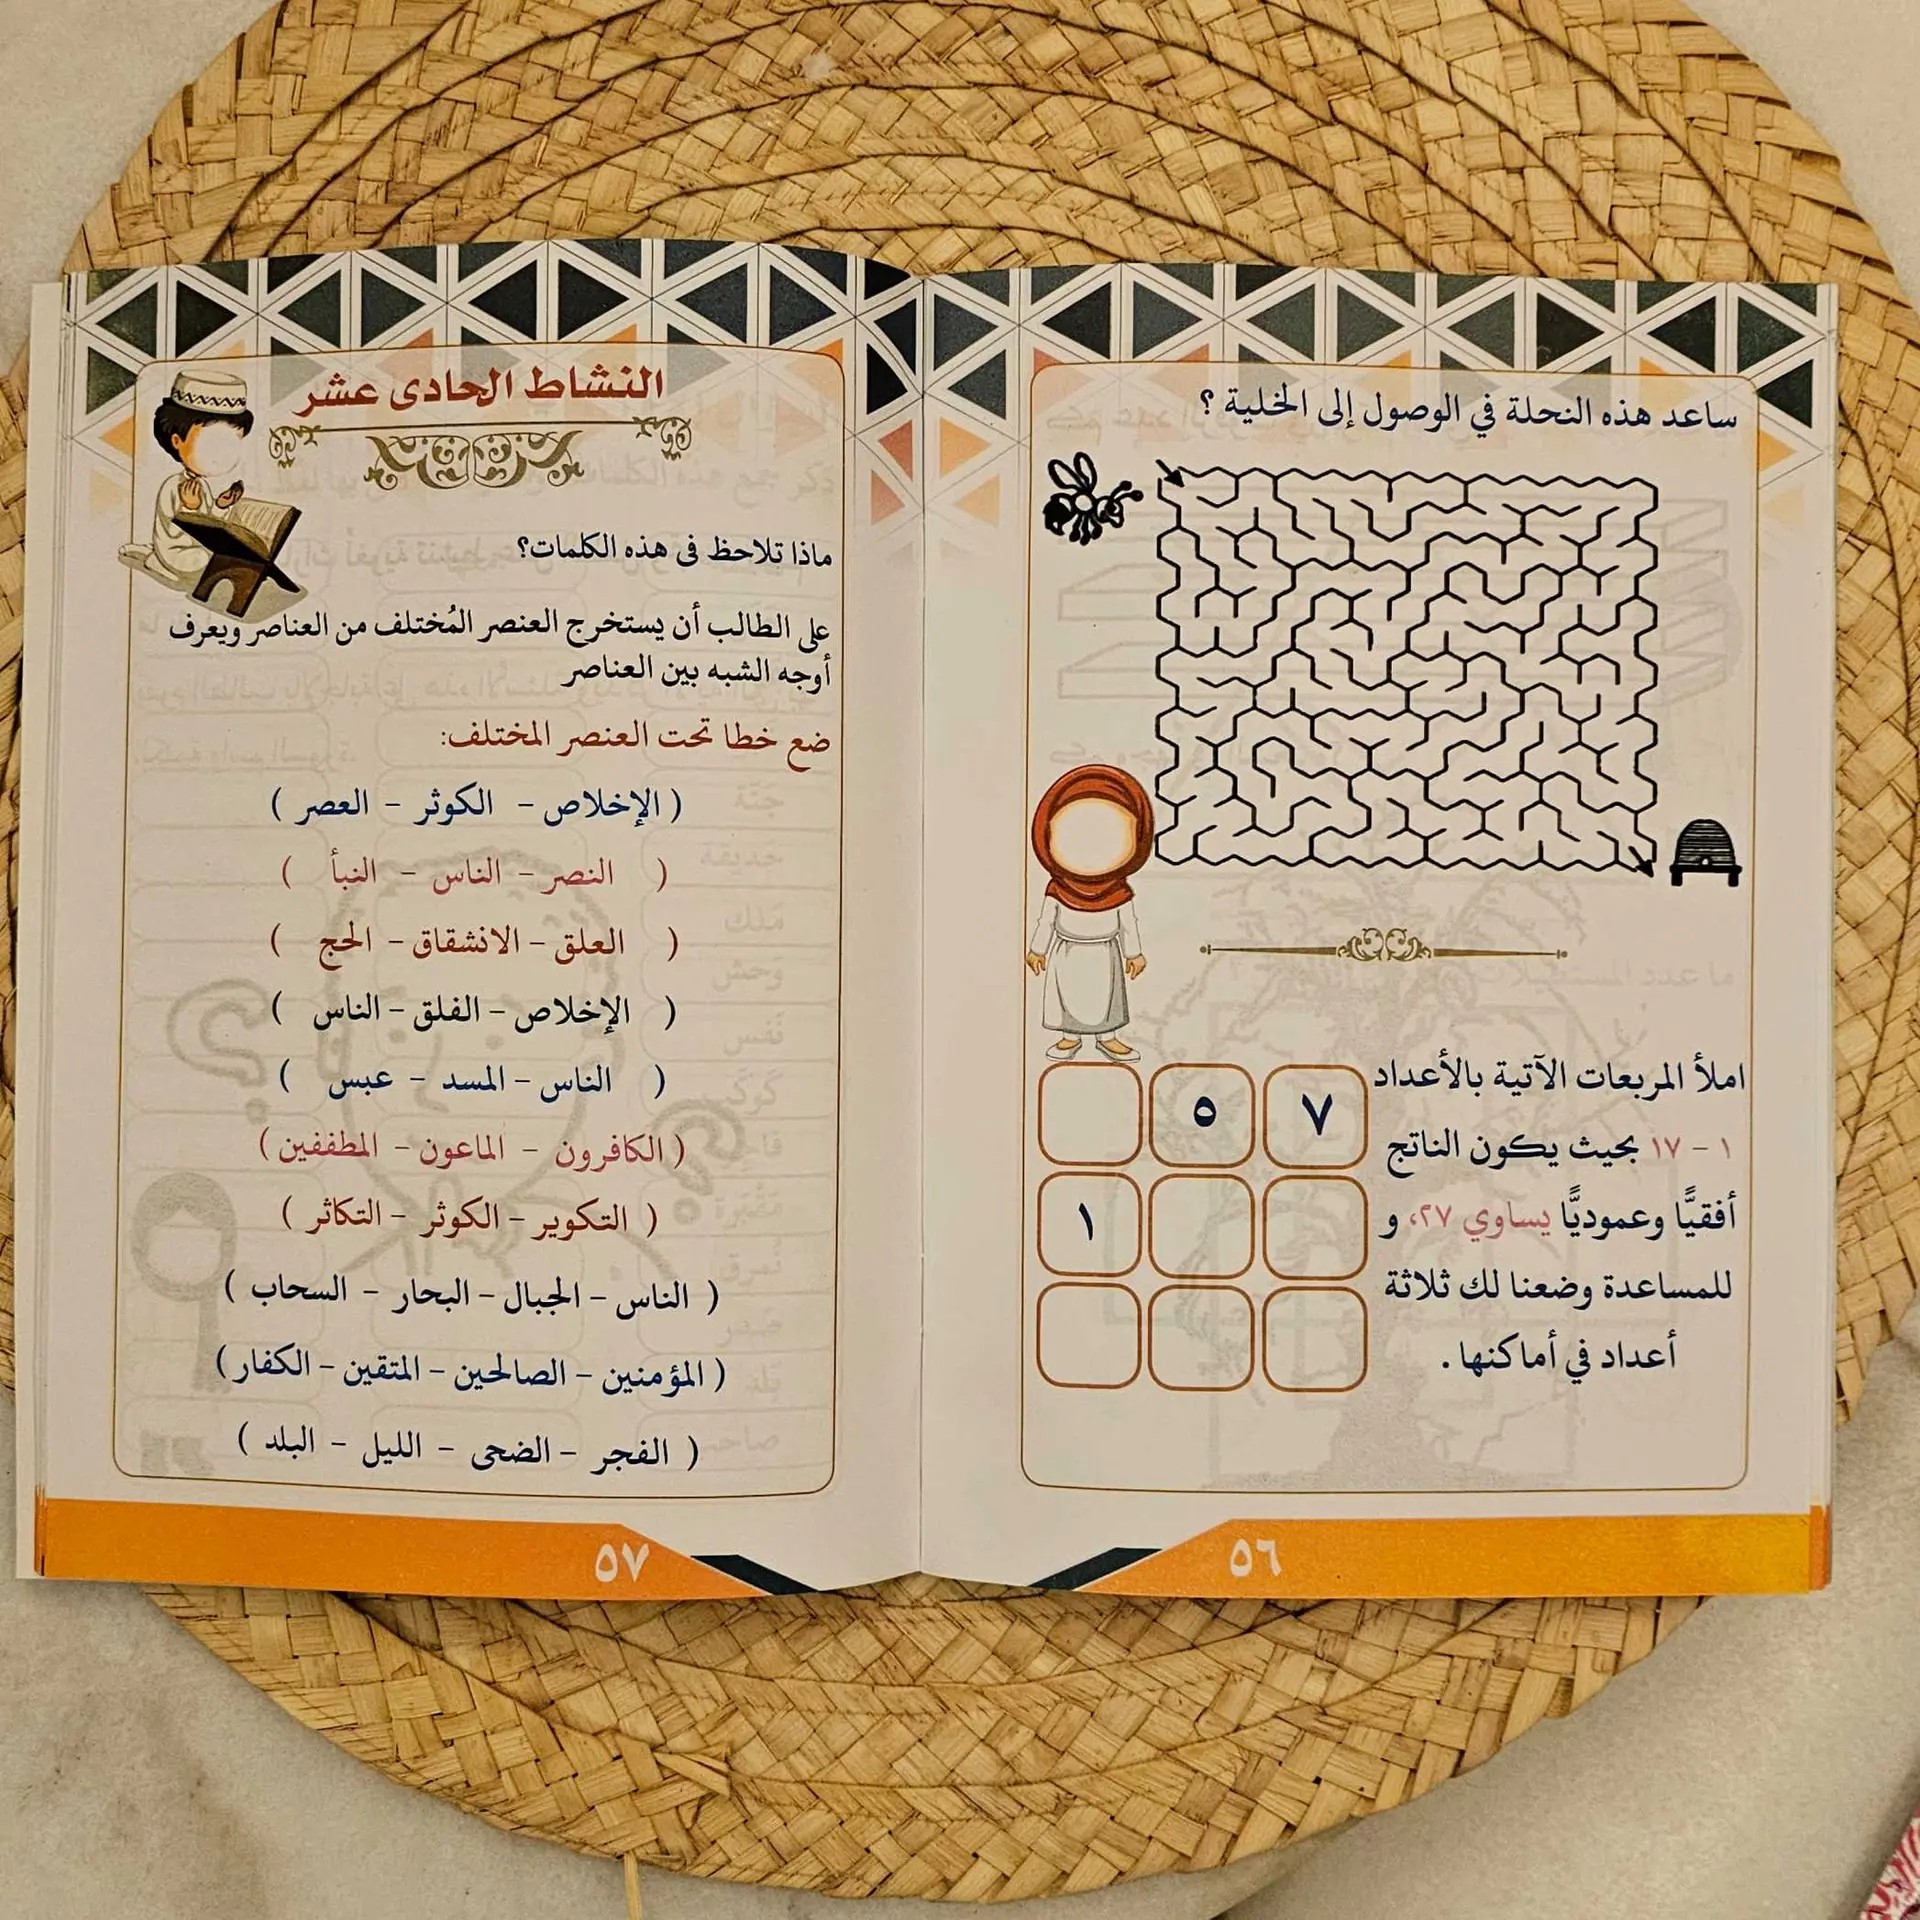 ساعد هذه النحلة في الوصول إلى الخلية ؟
املأ المربعات الآتية بالأعداد
١ - ١٧ بحيث يكون الناتج
أفقيًّا وعموديًّا يساوي ٢٧، و
للمساعدة وضعنا لك ثلاثة
أعداد في أماكنها .
٧ ٥
١
٥٦
النشاط الحادى عشر
ماذا تلاحظ فى هذه الكلمات؟
على الطالب أن يستخرج العنصر المُختلف من العناصر ويعرف
أوجه الشبه بين العناصر
ضع خطا تحت العنصر المختلف:
( الإخلاص - الكوثر - العصر )
( النصر - الناس - النبأ )
( العلق - الانشقاق - الحج )
( الإخلاص - الفلق - الناس )
( الناس - المسد - عبس )
( الكافرون - الماعون - المطففين )
( التكوير - الكوثر - التكاثر )
( الناس - الجبال - البحار - السحاب )
( المؤمنين - الصالحين - المتقين - الكفار )
( الفجر - الضحى - الليل - البلد )
٥٧